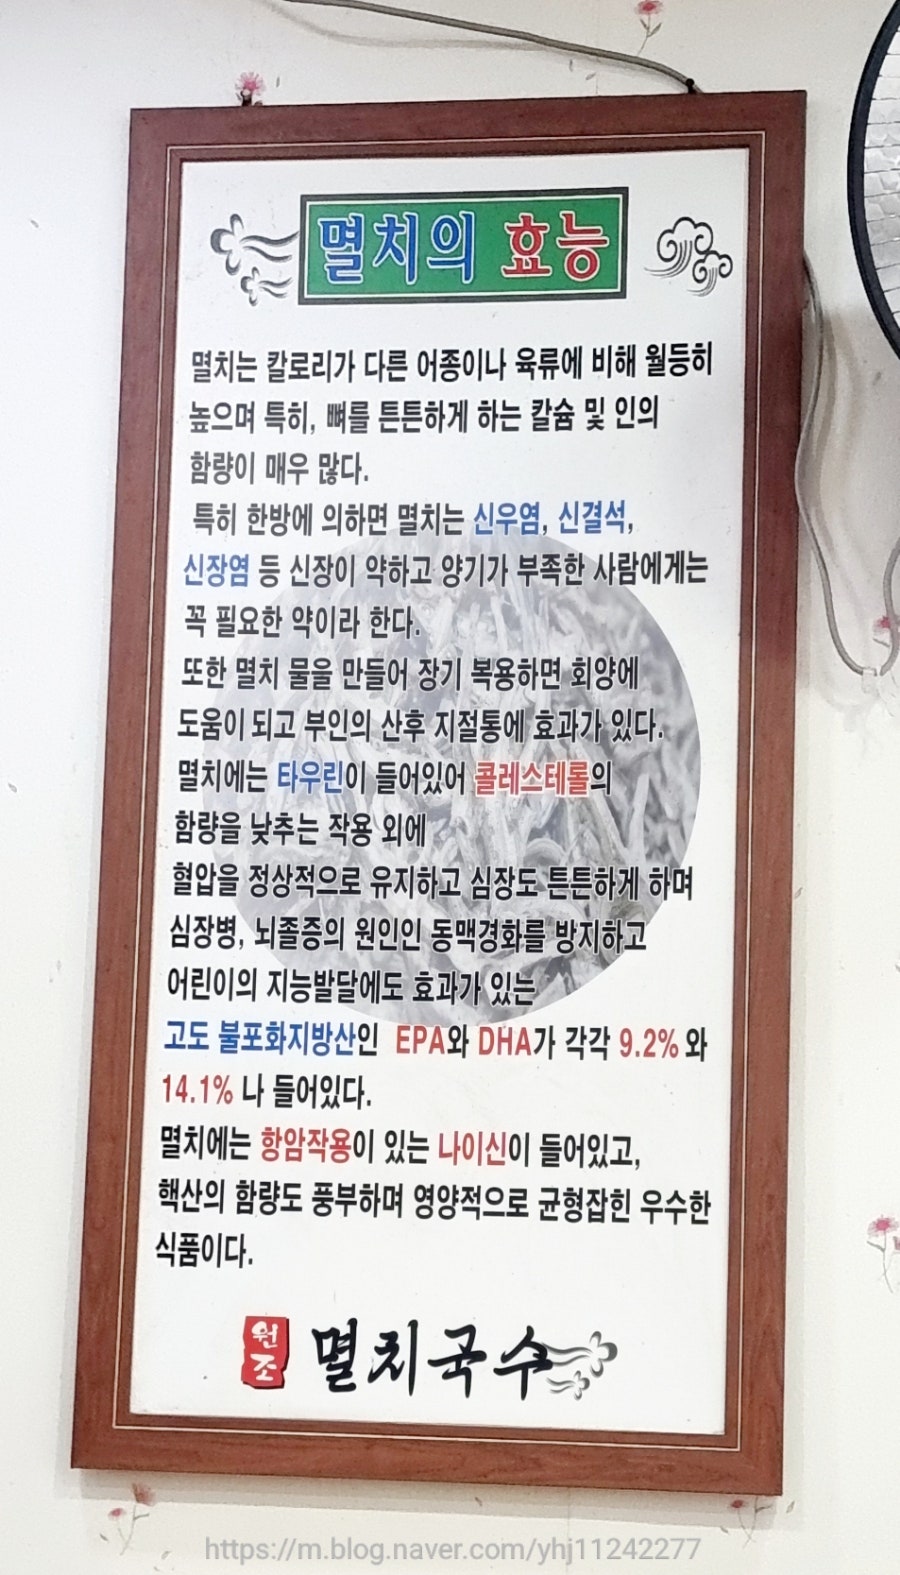 멸치의 효능
멸치는 칼로리가 다른 어종이나 육류에 비해 월등히
높으며 특히, 뼈를 튼튼하게 하는 칼슘 및 인의
함량이 매우 많다.
특히 한방에 의하면 멸치는 신우염, 신결석,
신장염 등 신장이 약하고 양기가 부족한 사람에게는
꼭 필요한 약이라 한다.
또한 멸치 물을 만들어 장기 복용하면 회양에
도움이 되고 부인의 산후 지절통에 효과가 있다.
멸치에는 타우린이 들어있어 콜레스테롤의
함량을 낮추는 작용 외에
혈압을 정상적으로 유지하고 심장도 튼튼하게 하며
심장병, 뇌졸증의 원인인 동맥경화를 방지하고
어린이의 지능발달에도 효과가 있는
고도 불포화지방산인 EPA와 DHA가 각각 9.2% 와
14.1% 나 들어있다.
멸치에는 항암작용이 있는 나이신이 들어있고,
핵산의 함량도 풍부하며 영양적으로 균형잡힌 우수한
식품이다.
원조 멸치국수
https://m.blog.naver.com/yhj11242277